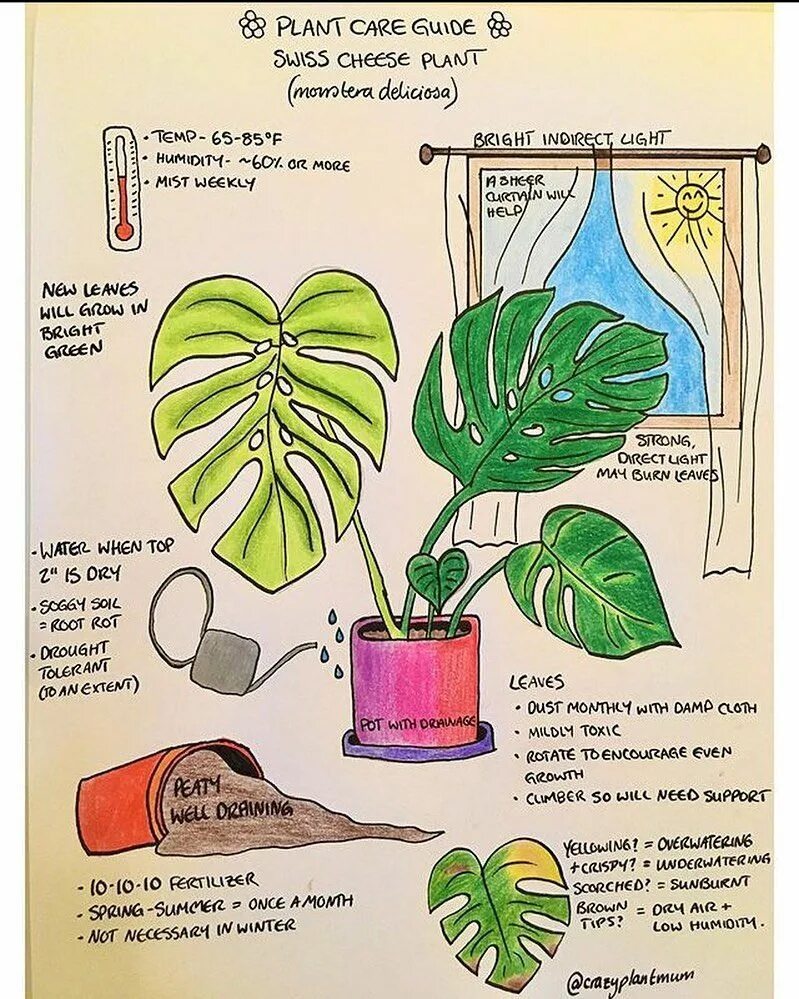 PLANT CARE GUIDE
SWISS CHEESE PLANT
(monstera deliciosa)
• TEMP- 65-85°F
• HUMIDITY- ~60% OR MORE
• MIST WEEKLY
BRIGHT INDIRECT LIGHT
A SHEER
CURTAIN WILL
HELP
NEW LEAVES
WILL GROW IN
BRIGHT
GREEN
STRONG,
DIRECT LIGHT
MAY BURN LEAVES
• WATER WHEN TOP
2" IS DRY
• SOGGY SOIL
= ROOT ROT
• DROUGHT
TOLERANT
(TO AN EXTENT)
POT WITH DRAINAGE
LEAVES
• DUST MONTHLY WITH DAMP CLOTH
• MILDLY TOXIC
• ROTATE TO ENCOURAGE EVEN
GROWTH
• CLIMBER SO WILL NEED SUPPORT
PEATY
WELL DRAINING
• 10-10-10 FERTILIZER
• SPRING-SUMMER = ONCE A MONTH
• NOT NECESSARY IN WINTER
YELLOWING? = OVERWATERING
+ CRISPY? = UNDERWATERING
SCORCHED? = SUNBURNT
BROWN = DRY AIR +
TIPS? LOW HUMIDITY.
@crazyplantmum